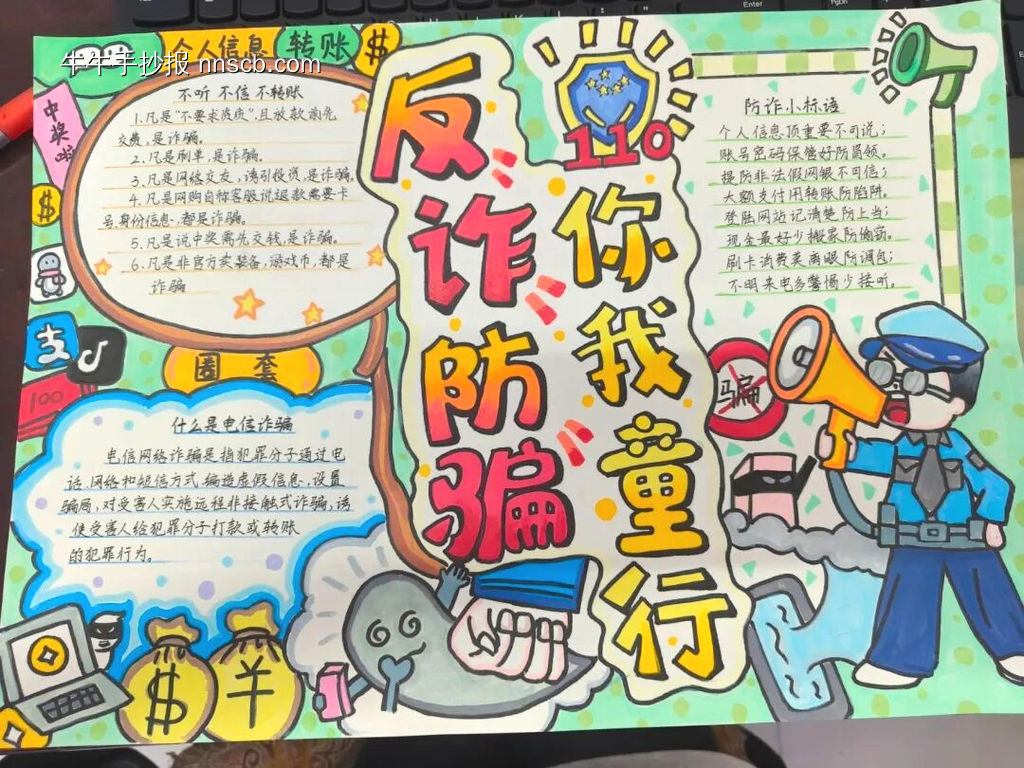 牛牛手抄报 nnscb.com
个人信息
转账
$
中奖啦
$
不听 不信 不转账
1.凡是"不要求资质",且放款前先
交费,是诈骗。
2.凡是刷单,是诈骗。
3.凡是网络交友,诱引投资,是诈骗。
4.凡是网购自称客服说退款需要卡
号身份信息,都是诈骗。
5.凡是说中奖需先交钱,是诈骗。
6.凡是非官方卖装备,游戏币,都是
诈骗
支
100
圈套
什么是电信诈骗
电信网络诈骗是指犯罪分子通过电
话、网络和短信方式,编造虚假信息,设置
骗局,对受害人实施远程非接触式诈骗,诱
使受害人给犯罪分子打款或转账
的犯罪行为。
$
¥
反诈防骗
110
你我童行
防诈小标语
个人信息顶重要不可说;
账号密码保管好防冒领。
提防非法假网银不可信;
大额支付用转账防陷阱。
登陆网站记清楚防上当;
现金最好少搬家防偷窃。
刷卡消费莫离眼防调包;
不明来电多警惕少接听。
骗